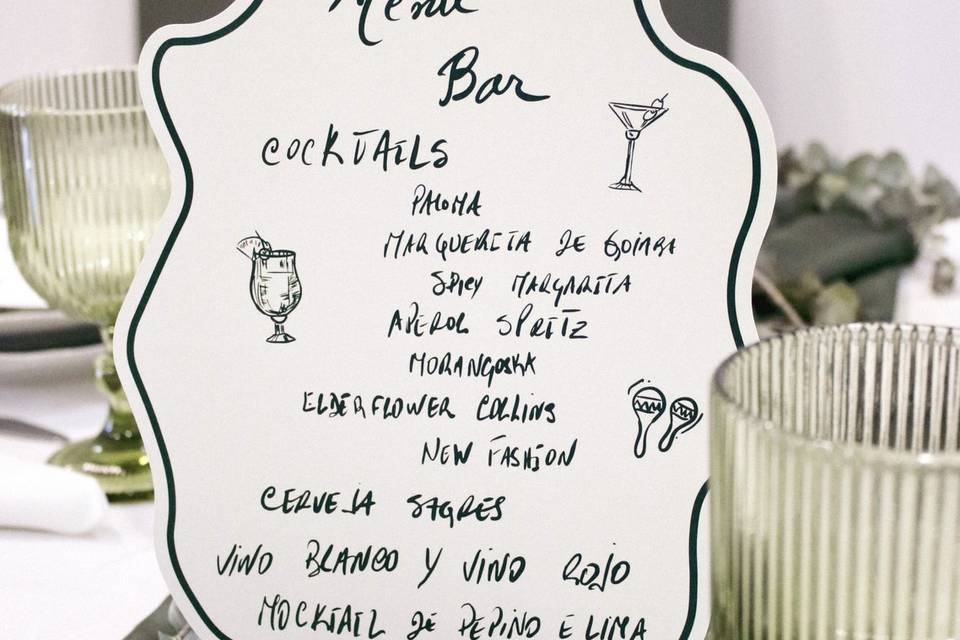 Menu
Bar
COCKTAILS
PALOMA
MARGUERITA DE GOIABA
SPICY MARGARITA
APEROL SPRITZ
MORANGOSKA
ELDERFLOWER COLLINS
NEW FASHION
CERVEJA SAGRES
VINO BLANCO Y VINO ROJO
MOCKTAIL DE PEPINO E LIMA